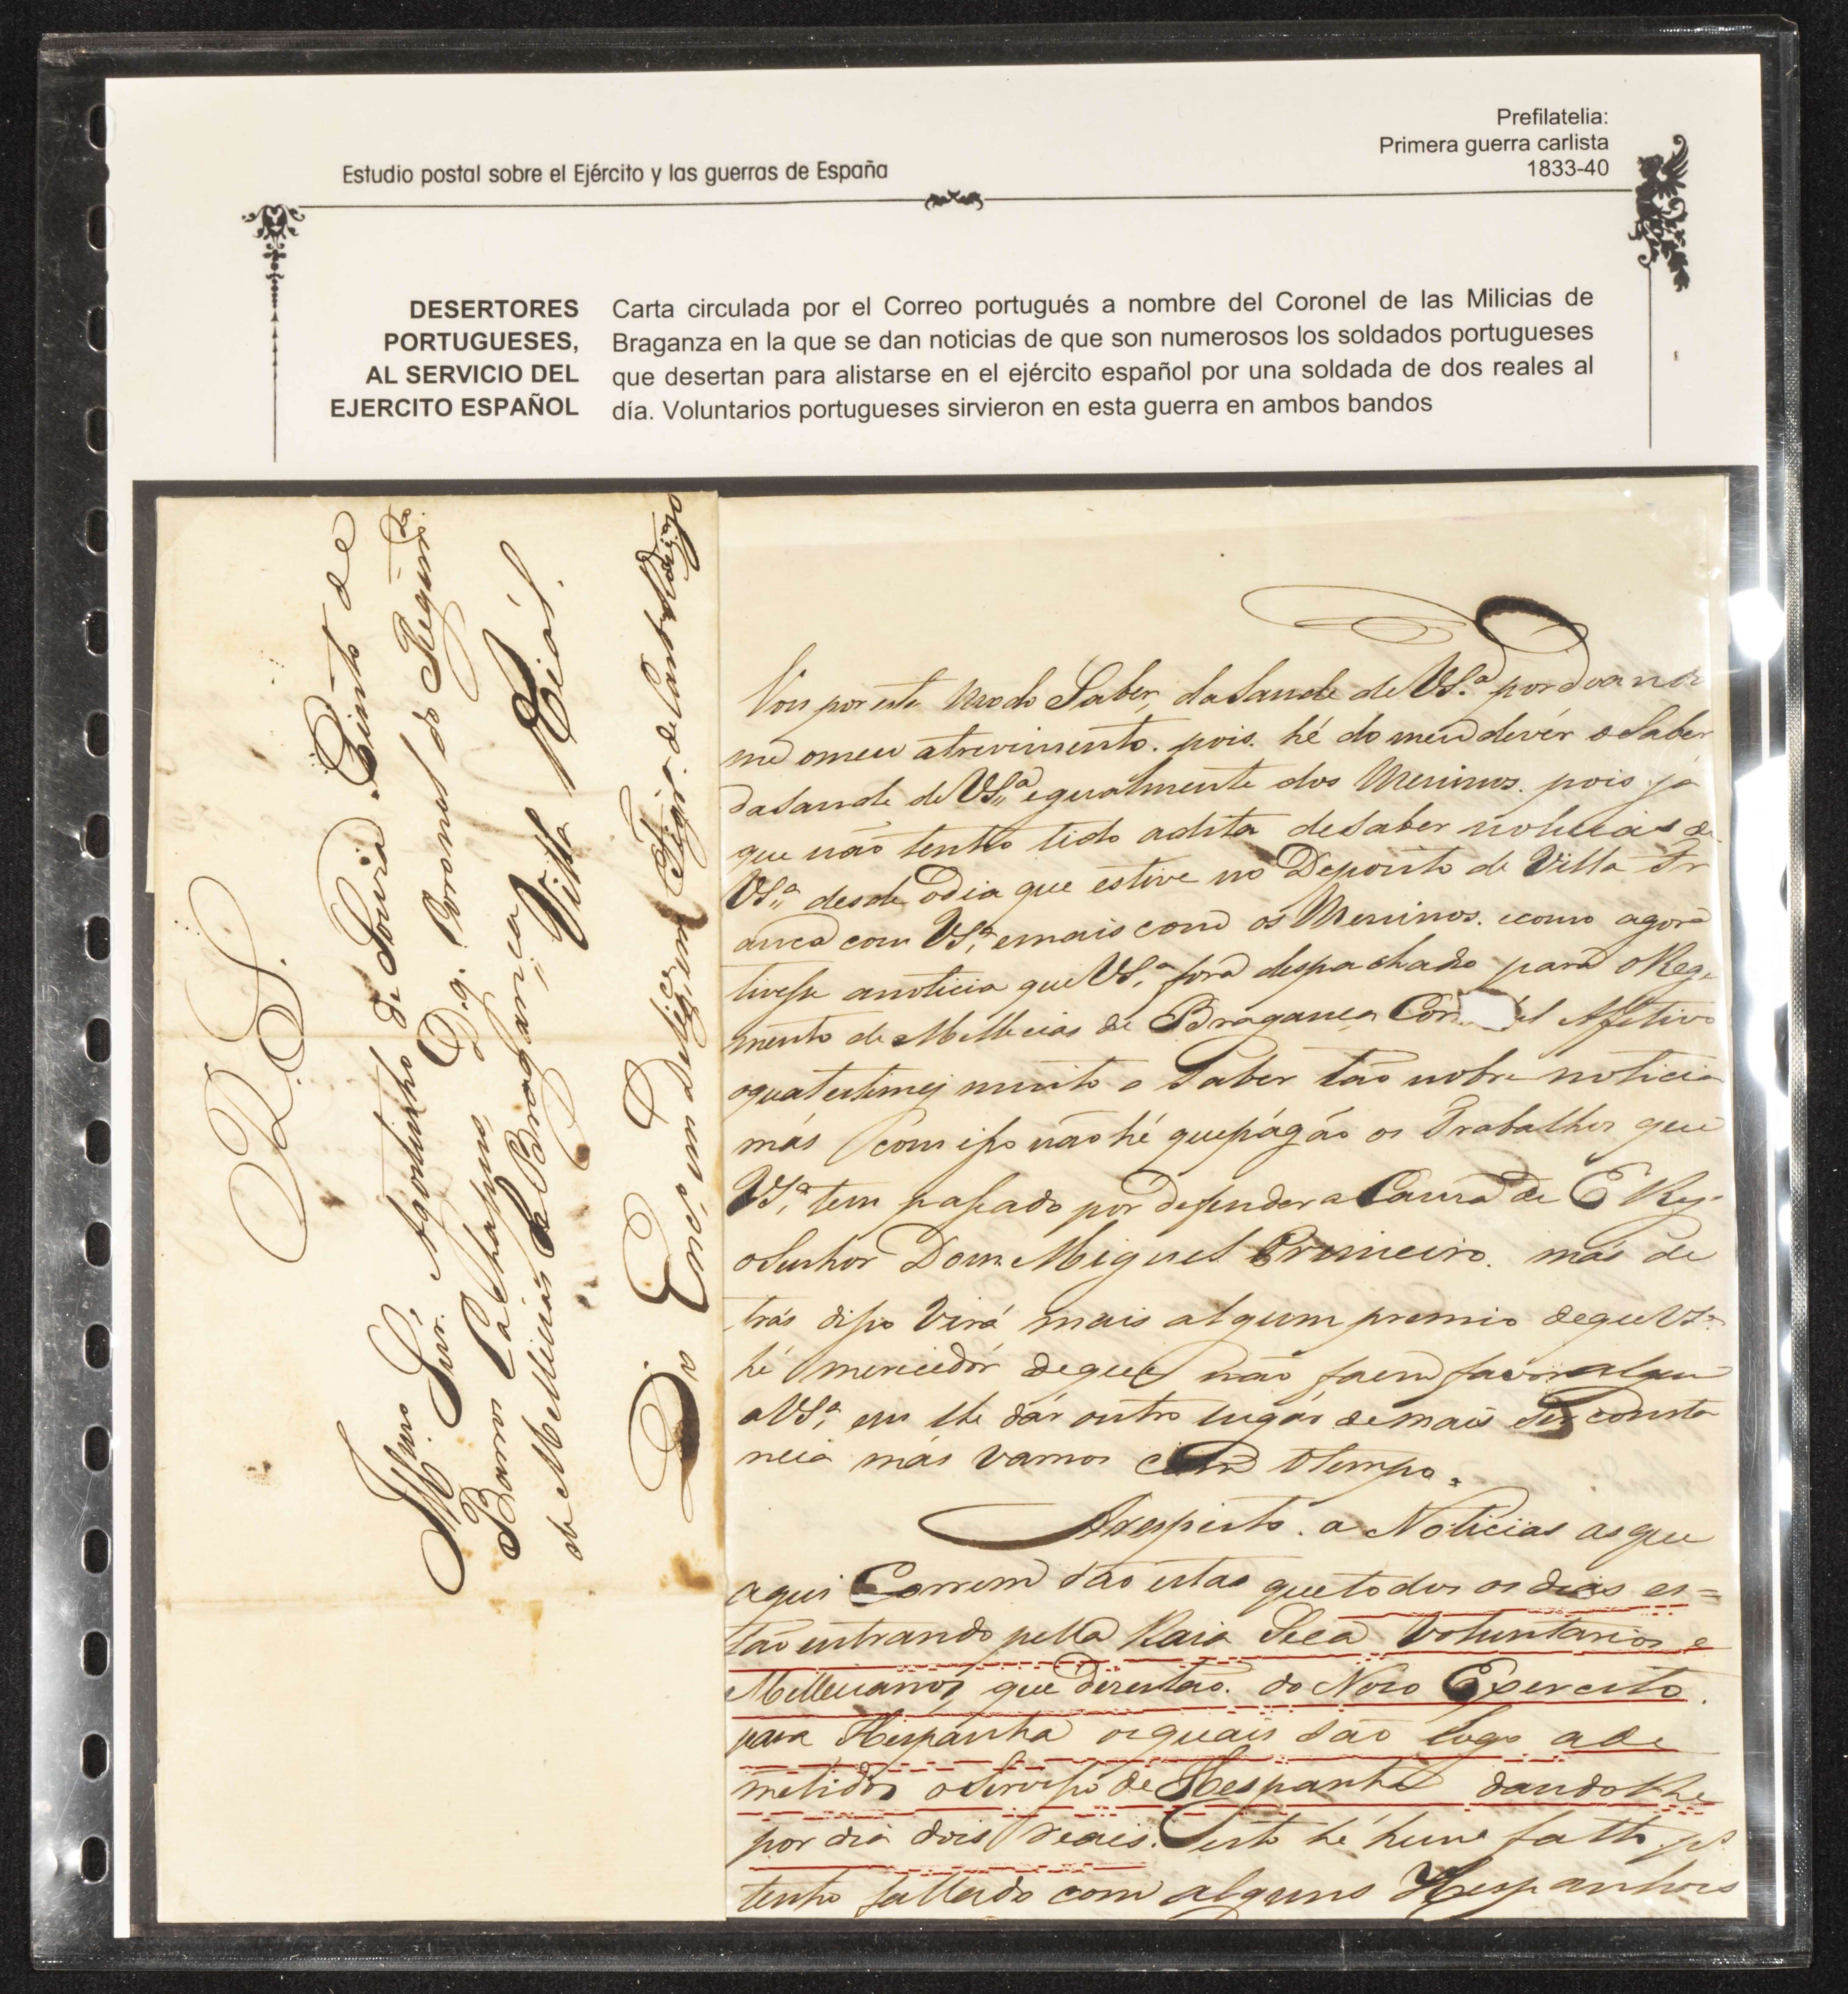 Prefilatelia:
Primera guerra carlista
1833-40
Estudio postal sobre el Ejército y las guerras de España
DESERTORES
PORTUGUESES,
AL SERVICIO DEL
EJERCITO ESPAÑOL
Carta circulada por el Correo portugués a nombre del Coronel de las Milicias de
Braganza en la que se dan noticias de que son numerosos los soldados portugueses
que desertan para alistarse en el ejército español por una soldada de dos reales al
día. Voluntarios portugueses sirvieron en esta guerra en ambos bandos
R. S.
Illmo Snr. Agostinho de Souza Pinto de
Barros Cachapus D.g. Coronel do Regim.to
de Mellicias de Bragança
Villa Rial
Do Enc. em Deligencia
Vou por este modo Saber, da Saude de VS.ª pordoando
me o meu atrevimento. pois. hé do meu devér o Saber
da Saude de VS.ª egualmente dos Meninos. pois já
que não tenho tido a dita de Saber noticias de
VS.ª desde o dia que estive no Deposito de Villa Fr
anca com VS.ª e mais com os Meninos. e como agora
tivesse a noticia que VS.ª fora despachado para o Reg.
mento de Mellicias de Bragança Cor el Effetivo
o qual estimej muito o Saber tão nobre noticia
más com isso não hé que págão os Trabalhos que
VS.ª tem passado por defender a Causa de E Rey.
o Senhor Dom Miguel Primeiro. más de
trás disso Virá mais algum premio de que VS.ª
hé merecedór de que não fazem favor algum
a VS.ª em lhe dár outro lugár de mais
más vamos com o tempo.
Arespeito. a Noticias as que
aqui Correm são estas que todos os dias es=
tão entrando pella Raia Seca Voluntarios e
Mellicianos, que dizertão. do Noço Exercito.
para Hespanha os quais são logo ade
metidos o Serviço de Hespanha dandolhe
por dia dois reais. Isto hé hum fatto. ps
tenho fallado com alguns Hespanhois